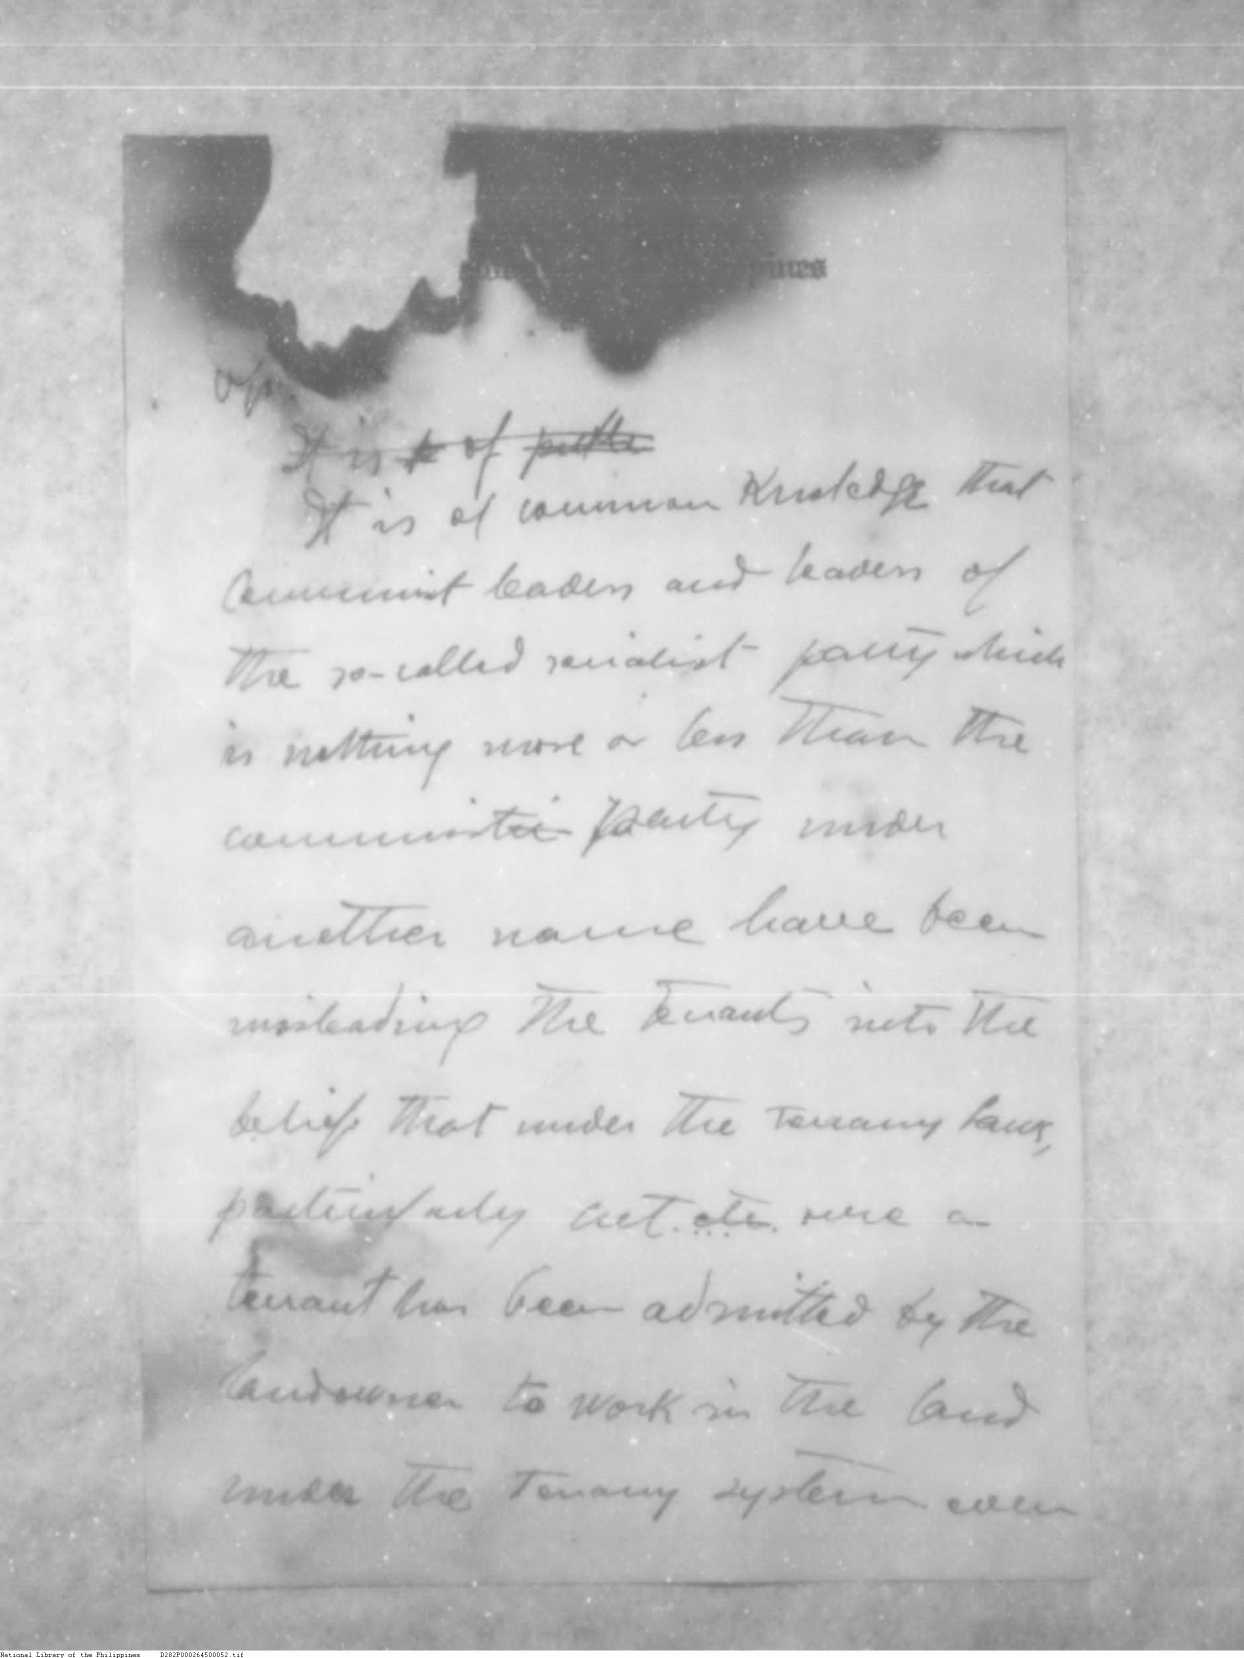 ppines
It is of
It is of common Knowledge that
Communist leaders and leaders of
the so-called socialist party which
is nothing more or less than the
communistic party under
another name have been
misleading the tenants into the
belief that under the tenancy laws,
particularly act. etc. once a
tenant has been admitted by the
landowner to work in the land
under the tenancy system even
National Library of the Philippines D282P000264500052.tif